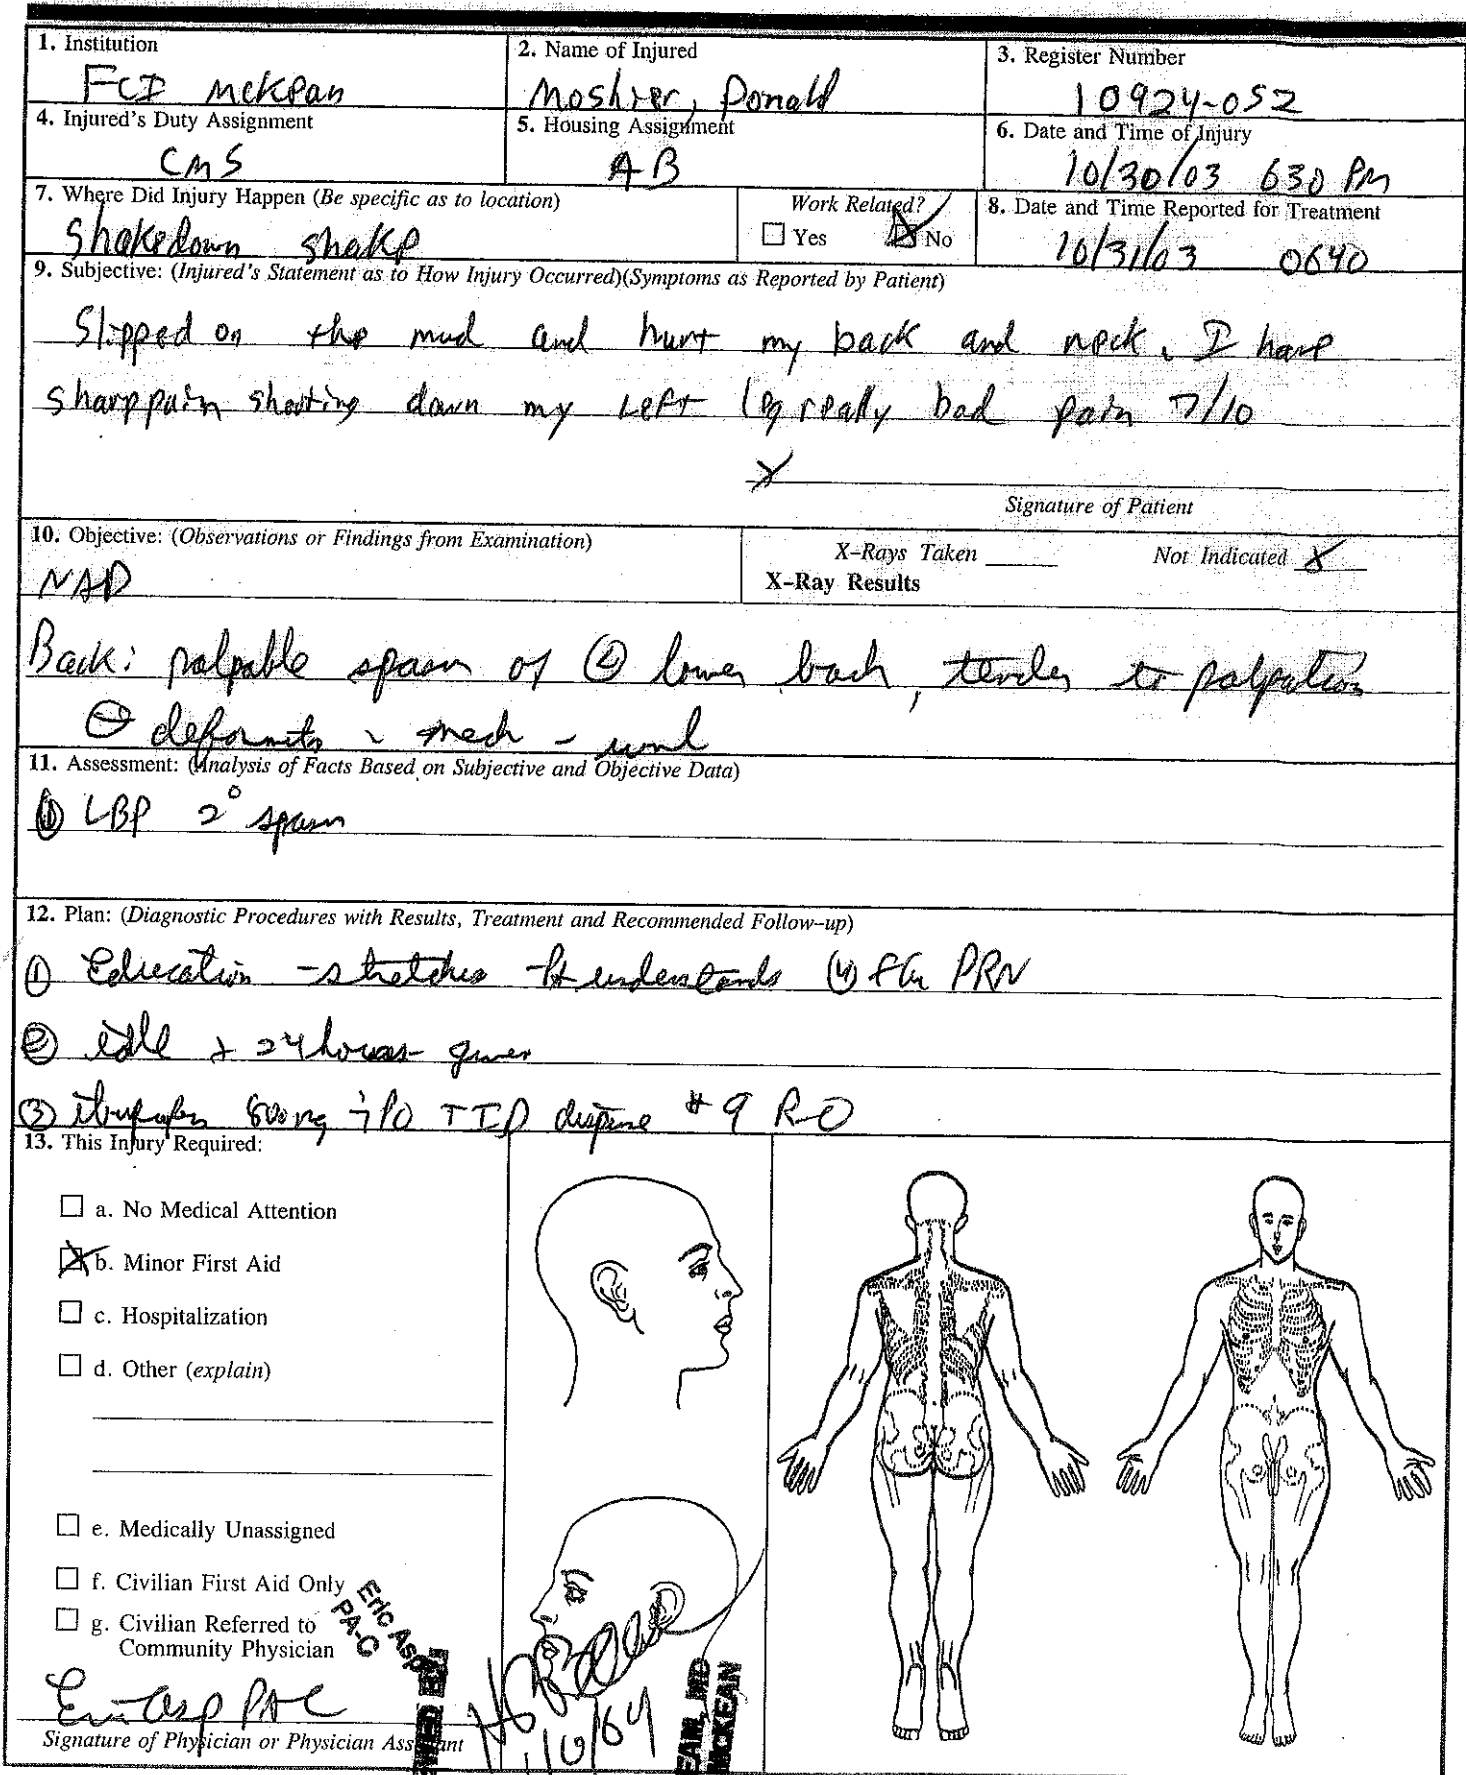 1. Institution
FCI McKean
2. Name of Injured
Moshier, Donald
3. Register Number
10924-052
4. Injured's Duty Assignment
CMS
5. Housing Assignment
AB
6. Date and Time of Injury
10/30/03 630 PM
7. Where Did Injury Happen (Be specific as to location)
Shakedown shake
Work Related?
Yes No
8. Date and Time Reported for Treatment
10/31/03 0640
9. Subjective: (Injured's Statement as to How Injury Occurred)(Symptoms as Reported by Patient)
Slipped on the mud and hurt my back and neck. I have
sharp pain shooting down my left leg really bad pain 7/10
X
Signature of Patient
10. Objective: (Observations or Findings from Examination)
NAD
X-Rays Taken Not Indicated X
X-Ray Results
Back: palpable spasm of Ⓛ lower back, tender to palpation
⊖ deformity
11. Assessment: (Analysis of Facts Based on Subjective and Objective Data)
① LBP 2° spasm
12. Plan: (Diagnostic Procedures with Results, Treatment and Recommended Follow-up)
① Education - stretches - Pt understands ④ PRN
② idle x 24 hours given
③ ibuprofen 800mg i PO TID dispense #9 R-0
13. This Injury Required:
a. No Medical Attention
b. Minor First Aid
c. Hospitalization
d. Other (explain)
e. Medically Unassigned
f. Civilian First Aid Only
g. Civilian Referred to
Community Physician
Eric Asp
PA-C
Eric Asp PAC
Signature of Physician or Physician Assistant
EAM, MD
MCKEAN